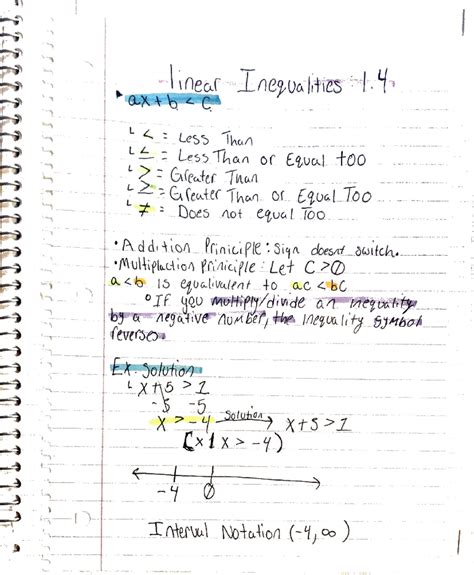 linear Inequalities 1.4
ax + b < c
< = Less Than
≤ = Less Than or Equal too
> = Greater Than
≥ = Greater Than or Equal Too
≠ = Does not equal Too
• Addition Priniciple: Sign doesnt switch.
• Multiplaction Priniciple: Let C > 0
a < b is equalivalent to ac < bc
° If you multiply/divide an inequality
by a negative number, the inequality symbol
reverses.
Ex. Solution
x + 5 > 1
-5 -5
x > -4 Solution → x + 5 > 1
(x | x > -4)
-4 0
Interval Notation (-4, ∞)